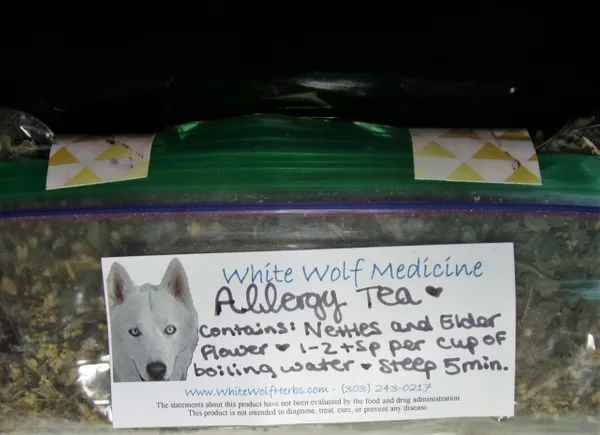 White Wolf Medicine
Allergy Tea ♥
Contains: Nettles and Elder
Flower ♥ 1-2 tsp per cup of
boiling water ♥ Steep 5 min.
www.WhiteWolfHerbs.com - (303) 243-0217
The statements about this product have not been evaluated by the food and drug administration.
This product is not intended to diagnose, treat, cure, or prevent any disease.